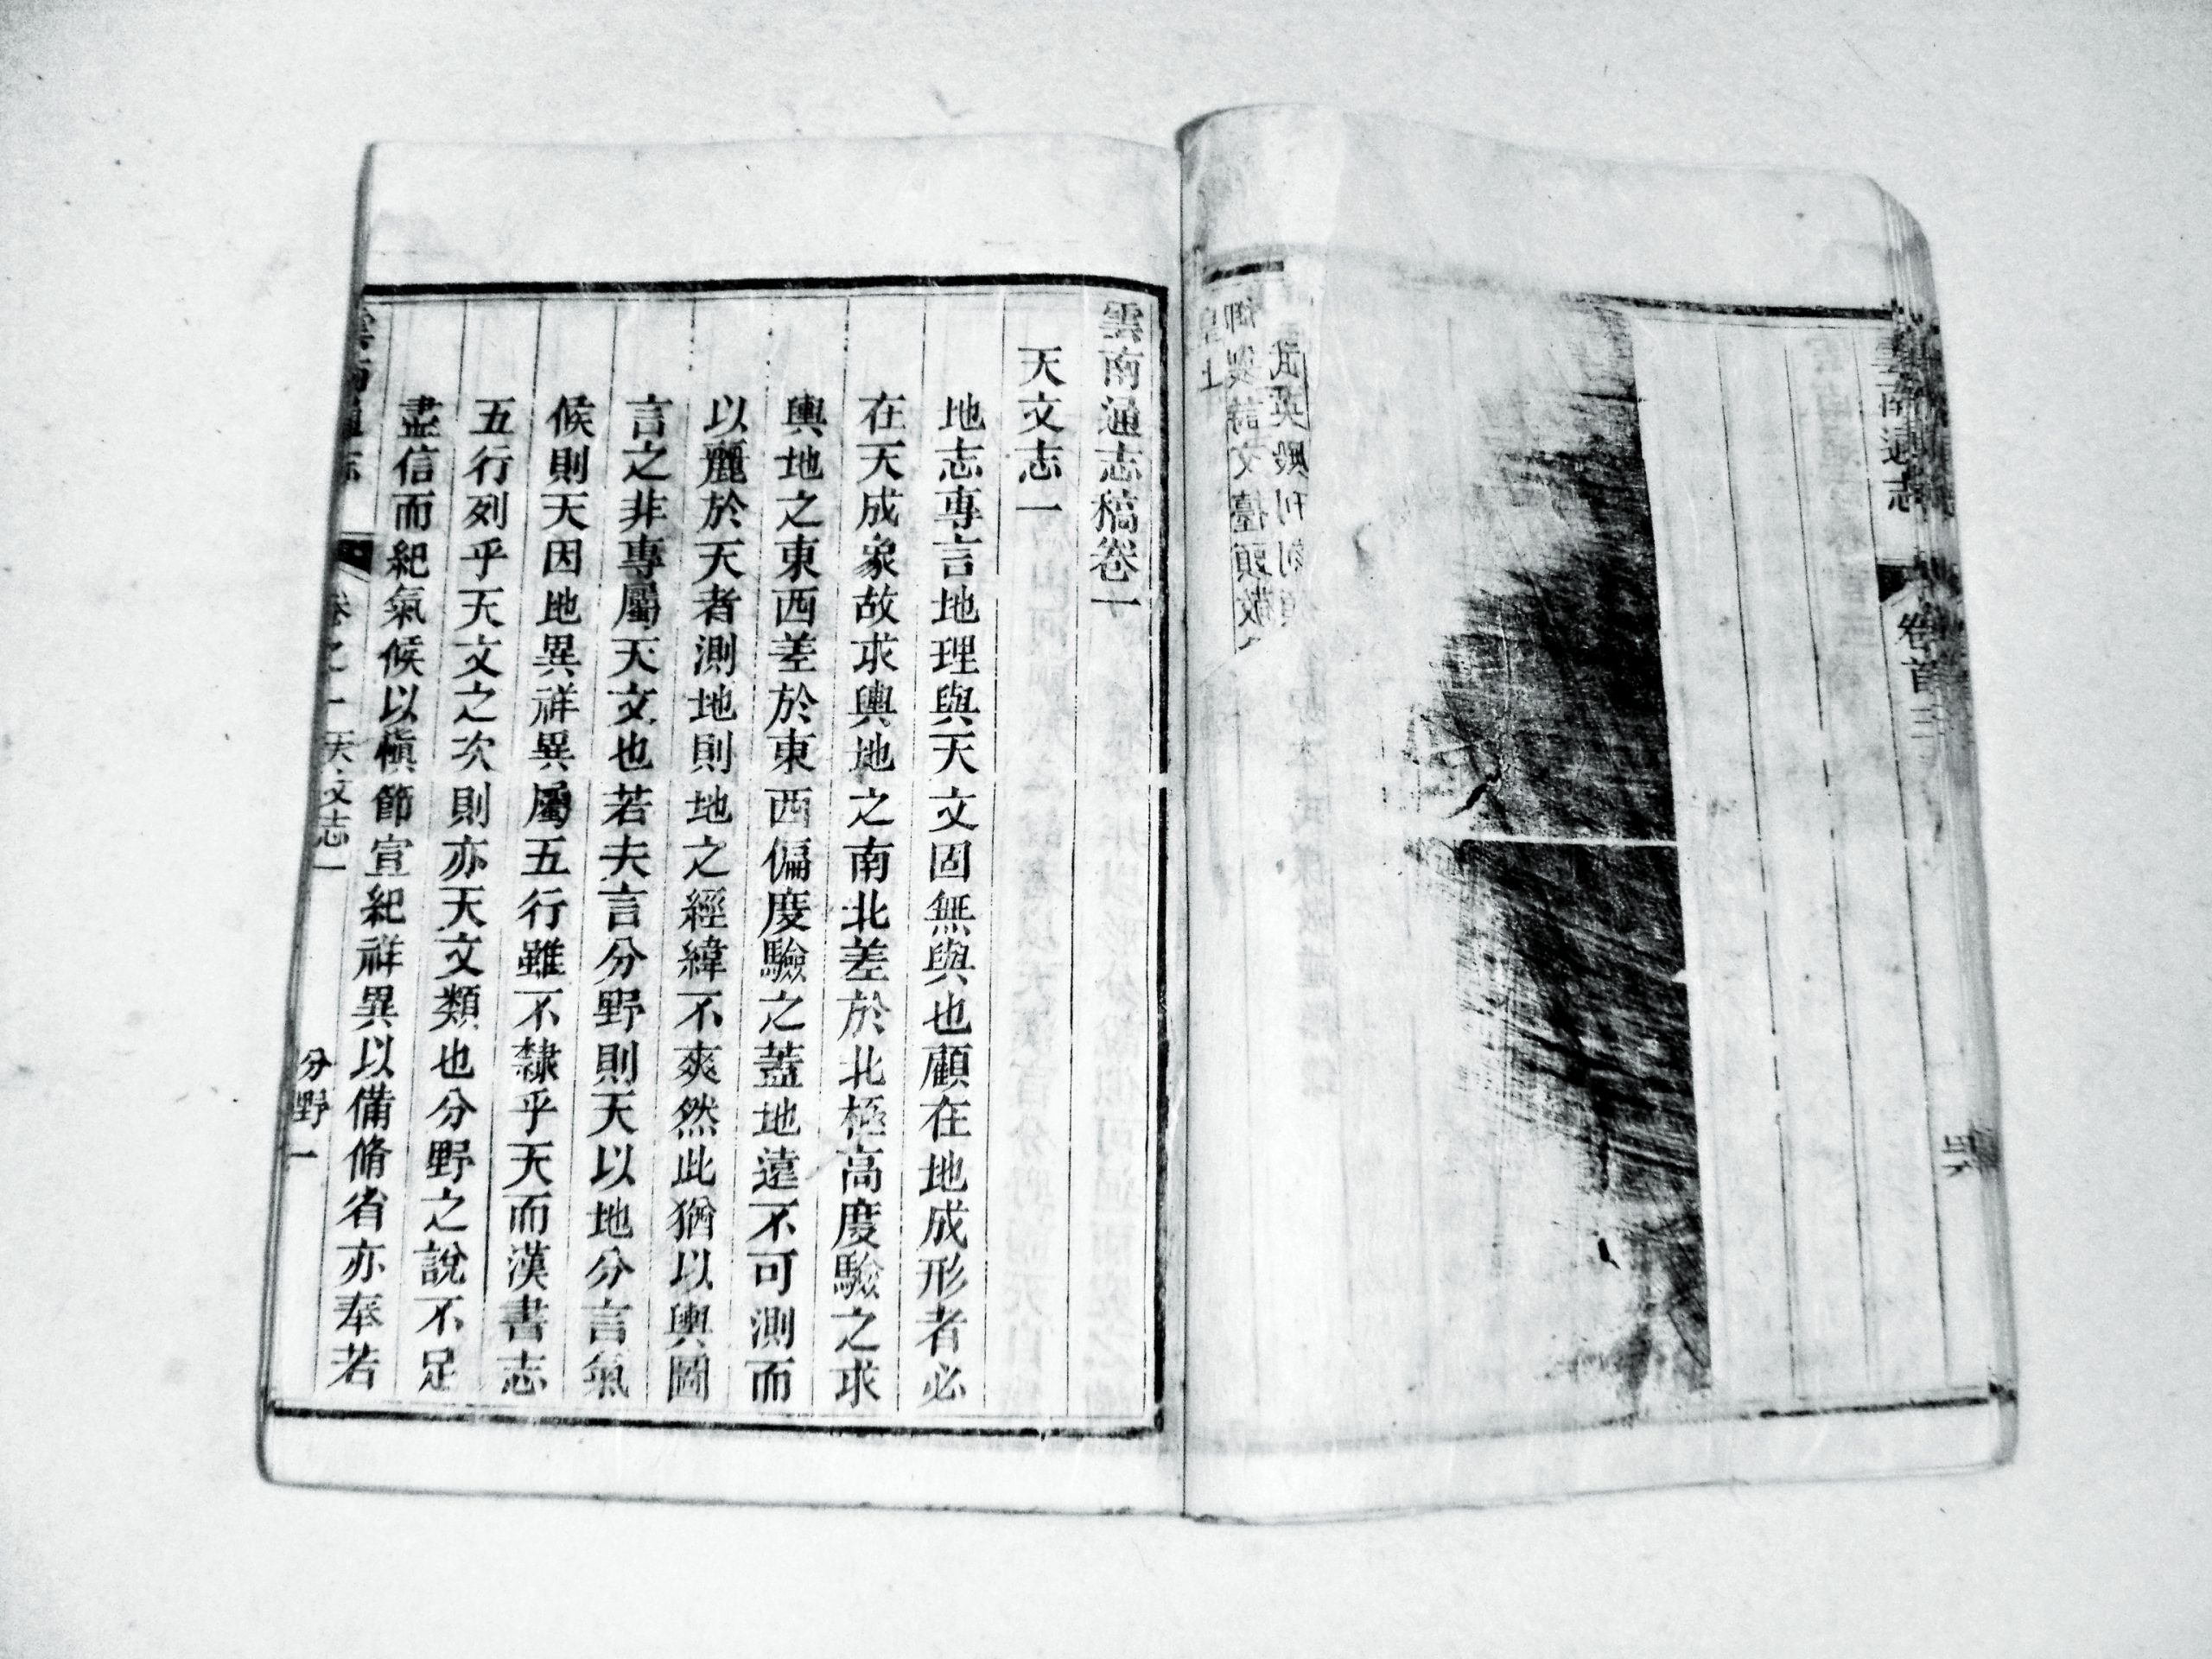 雲南通志
卷首三
雲南通志稿卷一
天文志一
地志專言地理與天文固無與也顧在地成形者必
在天成象故求輿地之南北差於北極高度驗之求
輿地之東西差於東西偏度驗之蓋地遠不可測而
以麗於天者測地則地之經緯不爽然此猶以輿圖
言之非專屬天文也若夫言分野則天以地分言氣
候則天因地異祥異屬五行雖不隸乎天而漢書志
五行列乎天文之次則亦天文類也分野之說不足
盡信而紀氣候以愼節宣紀祥異以備脩省亦奉若
雲南通志
卷之一
天文志一
分野一